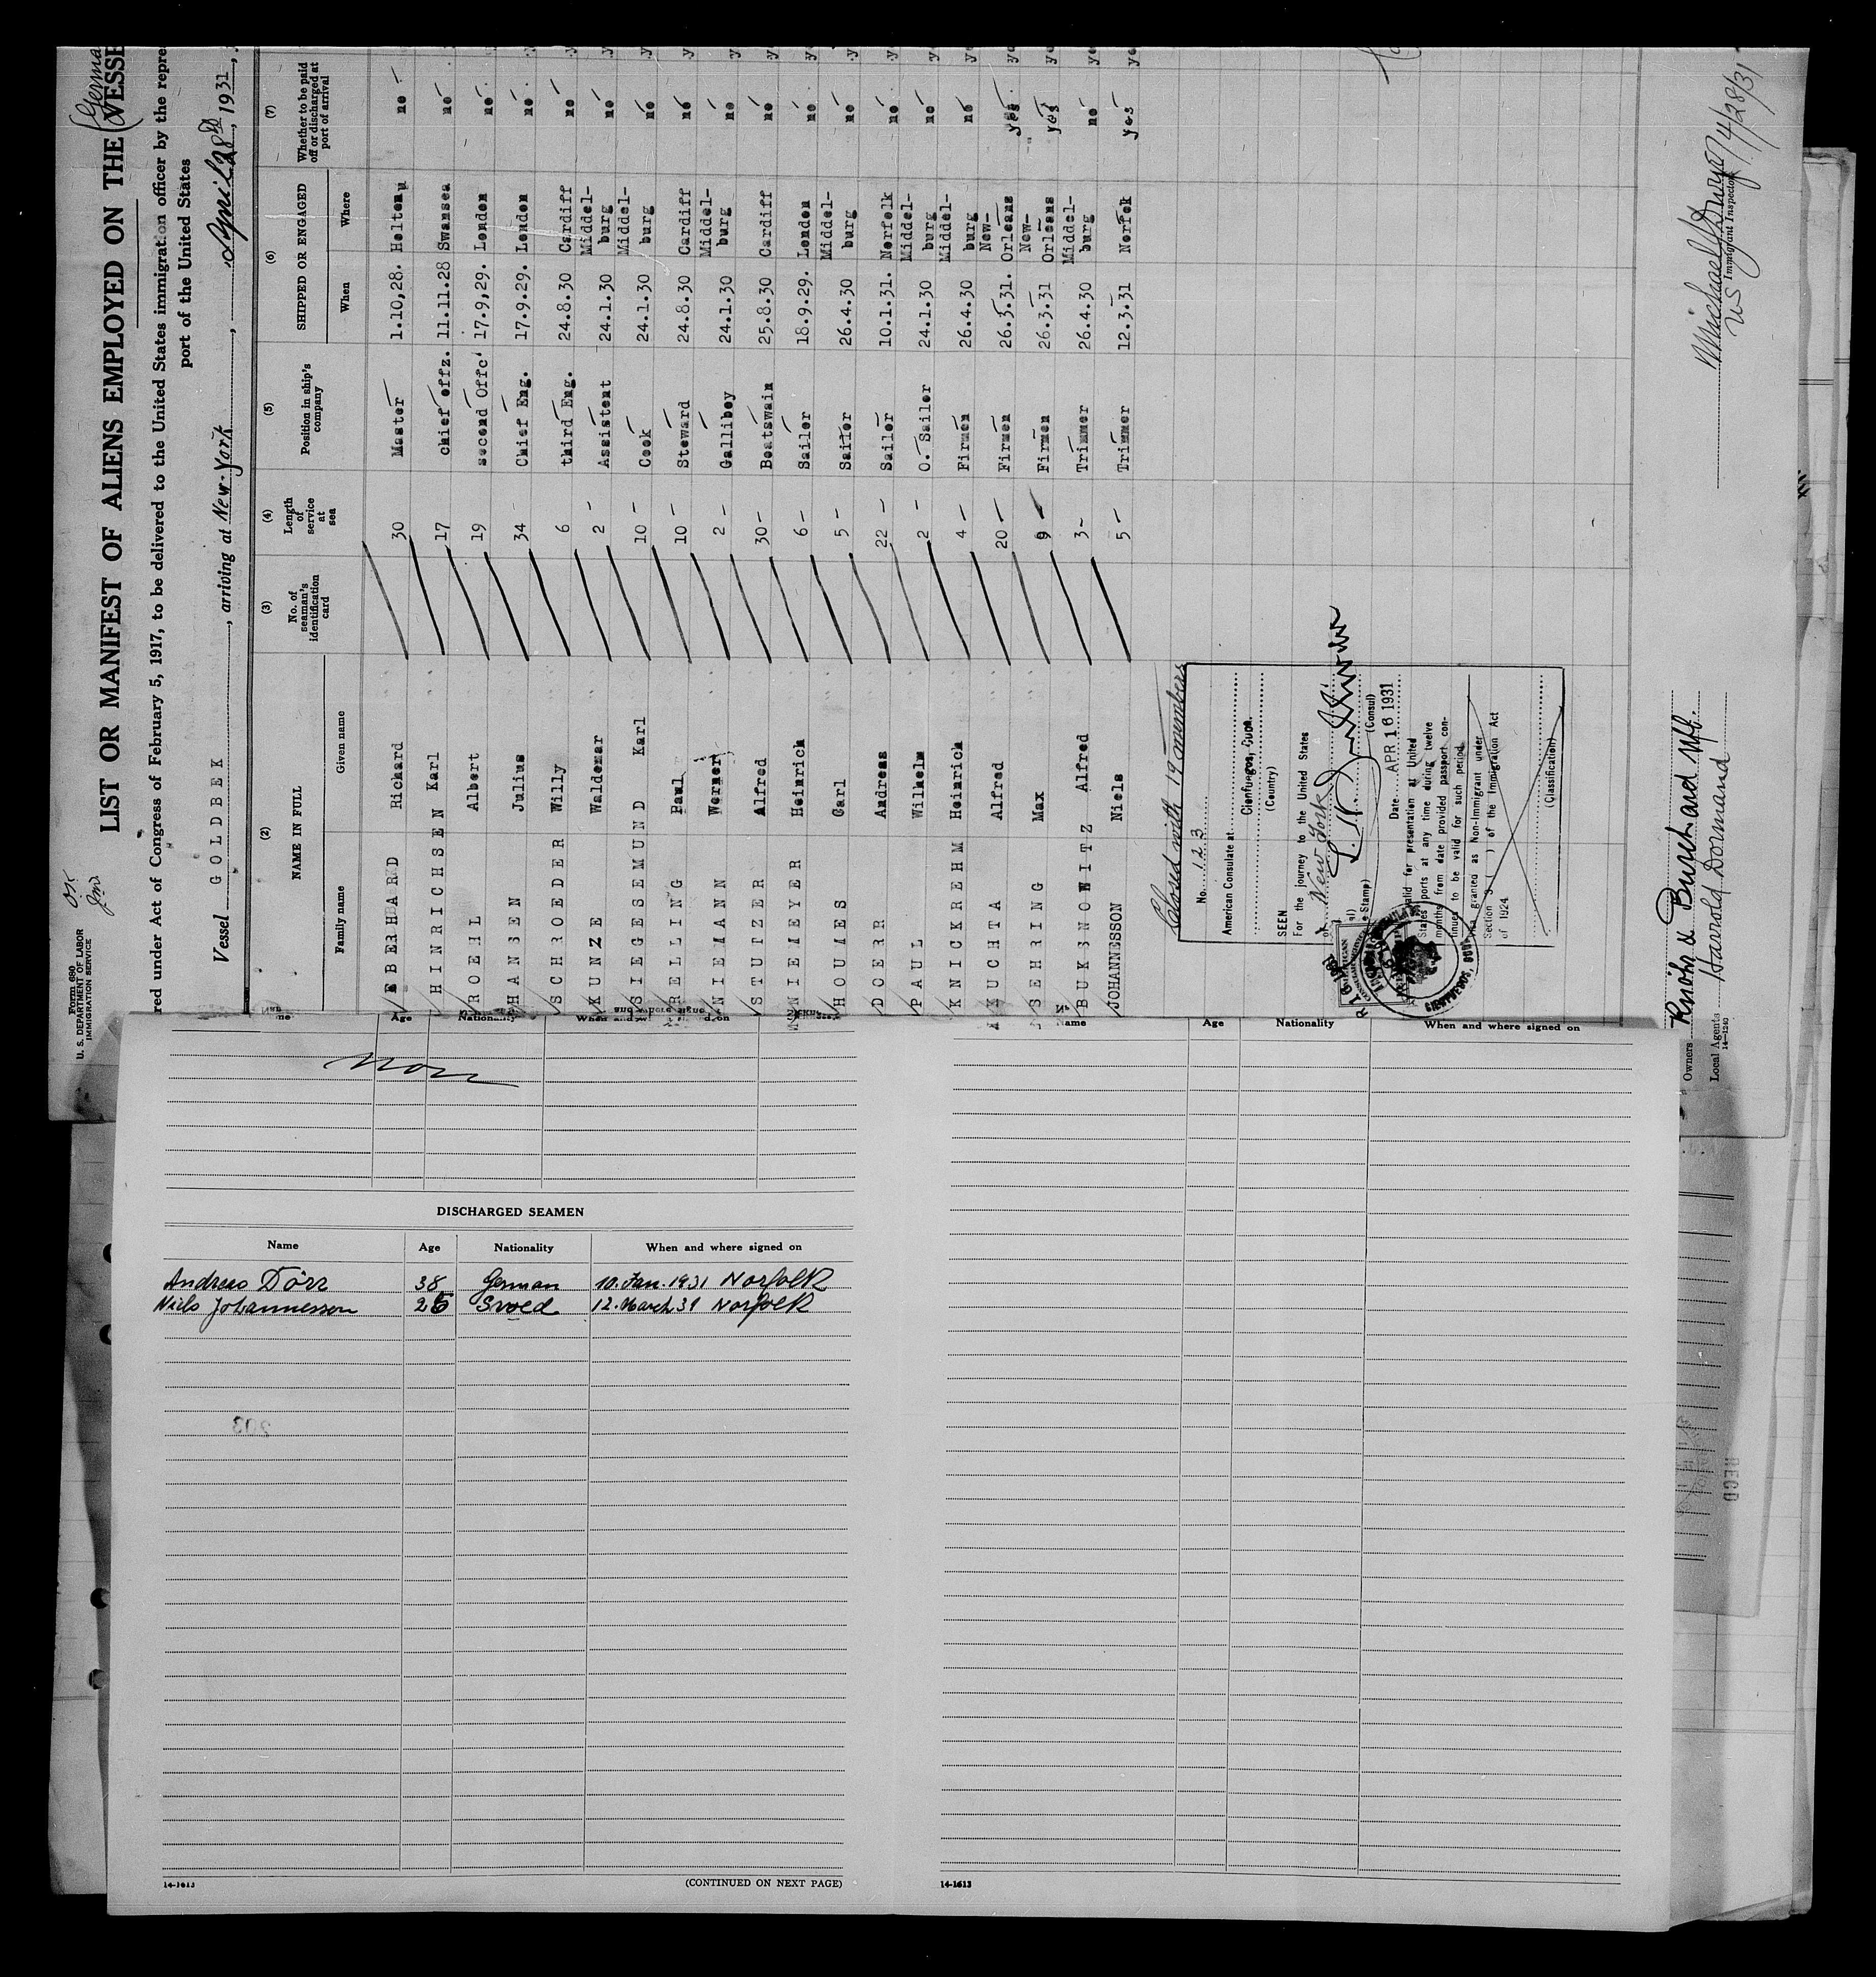 Form 680
U. S. DEPARTMENT OF LABOR
IMMIGRATION SERVICE
LIST OR MANIFEST OF ALIENS EMPLOYED ON THE VESSE
red under Act of Congress of February 5, 1917, to be delivered to the United States immigration officer by the repre
port of the United States
Vessel GOLDBEK, arriving at New-York, April 28th, 1931,
(2) (3) (4) (5) (6) (7)
NAME IN FULL No. of seaman's identification card Length of service at sea Position in ship's company SHIPPED OR ENGAGED Whether to be paid off or discharged at port of arrival
Family name Given name When Where
EBERHARD Richard 30 Master 1.10,28. Holtenu no
HINRICHSEN Karl 17 chief offz. 11.11.28 Swansea no
ROEHL Albert 19 second Offc' 17.9,29. London no
HANSEN Julius 34 Chief Eng. 17.9.29. London no
SCHROEDER Willy 6 third Eng. 24.8.30 Cardiff no
KUNZE Waldemar 2 Assistent 24.1.30 Middel-burg no
SIEGESEMUND Karl 10 Cook 24.1.30 Middel-burg no
RELLING Paul 10 Steward 24.8.30 Cardiff no
NIEMANN Werner 2 Galliboy 24.1.30 Middel-burg no
STUTZER Alfred 30 Boatswain 25.8.30 Cardiff no
NIEMEYER Heinrich 6 Sailor 18.9.29. London no
HOUMES Carl 5 Sailor 26.4.30 Middel-burg no
DOERR Andreas 22 Sailor 10.1.31. Norfolk no
PAUL Wilhelm 2 O. Sailor 24.1.30 Middel-burg no
KNICKREHM Heinrich 4 Firmen 26.4.30 Middel-burg no
KUCHTA Alfred 20 Firmen 26.3.31. New-Orleans yes
SEHRING Max 9 Firmen 26.3.31 New-Orleans yes
BUKSNOWITZ Alfred 3 Trimmer 26.4.30 Middel-burg no
JOHANNESSON Niels 5 Trimmer 12.3.31 Norfok yes
Closed with 19 members
No. 123
American Consulate at
Cienfuegos, Cuba.
(Country)
SEEN
For the journey to the United States
New York
(Consul)
Date APR 16 1931
valid for presentation at United
States ports at any time during twelve
months from date provided passport con-
tinues to be valid for such period.
granted as Non-Immigrant under
Section 3 ( ) of the Immigration Act
of 1924
(Classification)
Owners Knöhr & Burchard Nfl.
Local Agents Harrold Dormand
14-1240
4/28/31
US Immigrant Inspector
Age Nationality When and where signed on
DISCHARGED SEAMEN
Name Age Nationality When and where signed on
Andreas Dörr 38 German 10. Jan. 1931 Norfolk
Niels Johannesson 26 Swed 12. March 31 Norfolk
14-1613
(CONTINUED ON NEXT PAGE)
Name Age Nationality When and where signed on
14-1613
RECD